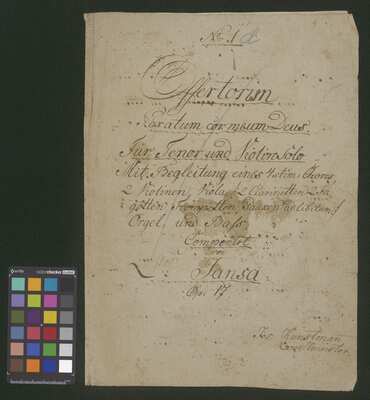 No. 1
Offertorium
Paratum cor meum Deus
Für Tenor und Violin Solo
Mit Begleitung eines 4 stim: Chors
2 Violinen, Viola, 2 Clarinetten 2 Fa
gotten 2 Trompetten Paucken
Orgel, und Bass
Componirt
von
L: Jansa
Op: 17